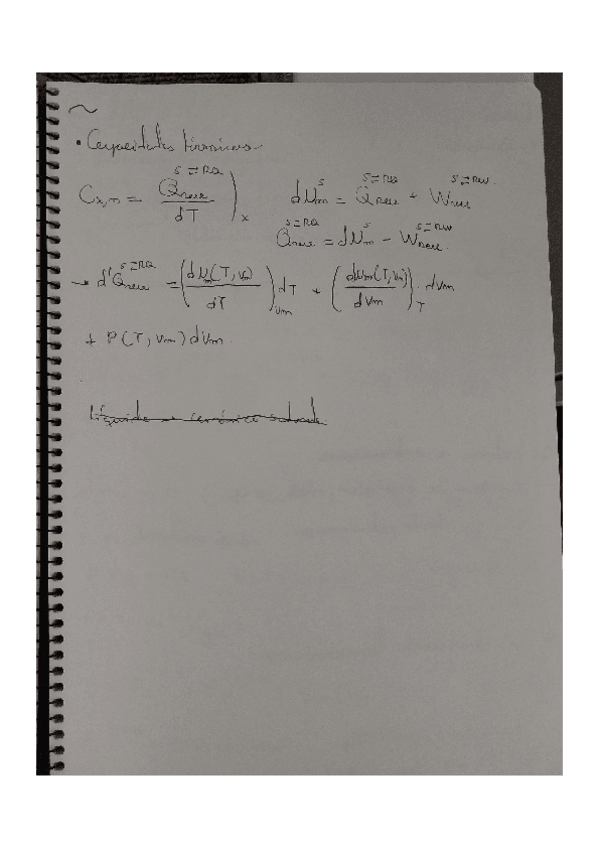 ~
• Capacidades térmicas
C_{x,n} = Q_{rev}^{S⇌RQ} / dT )_x   dU_m^S = Q_{rev}^{S⇌RQ} + W_{rev}^{S⇌RW}
Q_{rev}^{S⇌RQ} = dU_m^S - W_{rev}^{S⇌RW}.
→ d'Q_{rev}^{S⇌RQ} = (dU_m(T, v_m) / dT)_{Vm} dT + (dU_m(T, v_m) / dV_m)_T · dV_m
+ P(T, V_m) dV_m.
Líquido → cerâmica